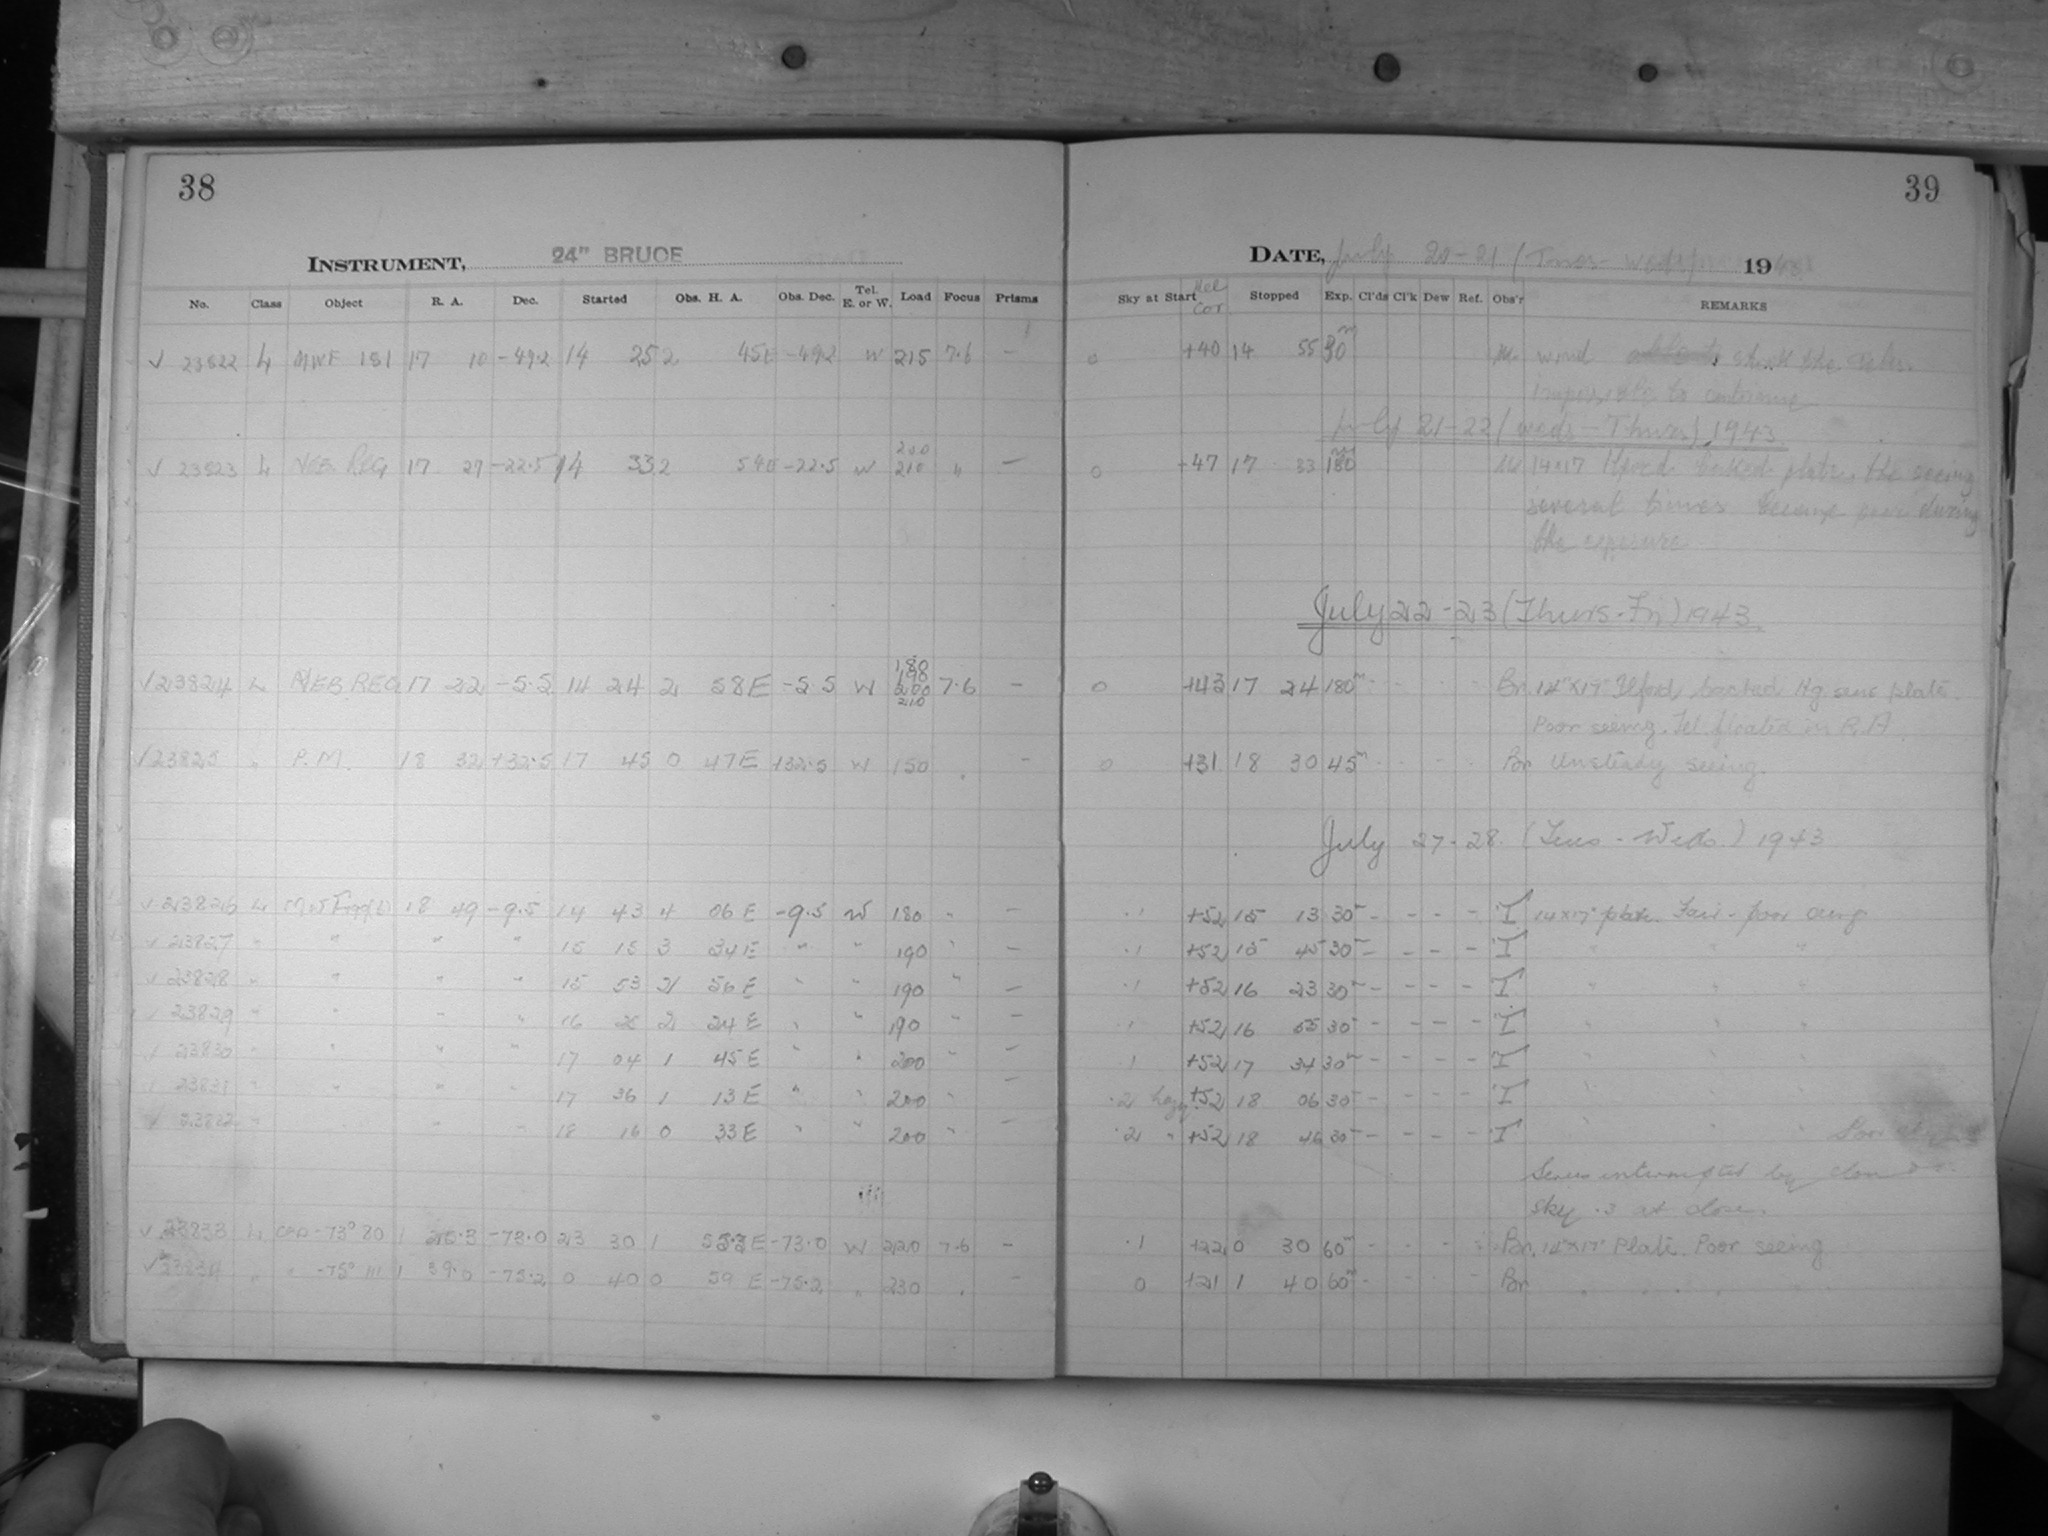 38
INSTRUMENT, 24" BRUCE
No. Class Object R. A. Dec. Started Obs. H. A. Obs. Dec. Tel. E. or W. Load Focus Prisms
√ 23822 L MWF 181 17 10 -49.2 14 25 2 45E -49.2 W 215 7.6 —
√ 23823 L NEB. REG 17 27 -22.5 14 33 2 54E -22.5 W 200 210 " —
√ 23824 L NEB. REG 17 22 -5.5 14 24 2 58E -5.5 W 180 190 200 210 7.6 —
√ 23825 " P.M. 18 32 +32.5 17 45 0 47E +32.5 W 150 " —
√ 23826 L 18 49 -9.5 14 43 4 06 E -9.5 W 180 " —
√ 23827 " " " " 15 15 3 34E " " 190 " —
√ 23828 " " " " 15 53 2 56E " " 190 " —
√ 23829 " " " " 16 25 2 24E " " 190 " —
√ 23830 " " " " 17 04 1 45E " " 200 " —
√ 23831 " " " " 17 36 1 13E " " 200 " —
√ 23832 " " " 18 16 0 33E " " 200 " —
√ 23833 L CPD -73° 80 1 -73.0 23 30 1 E -73.0 W 220 7.6 —
√ 23834 " " -75° 1 -75.2 0 40 0 59 E -75.2 " 230 " —
39
DATE, July 20-21 (Tues- Weds) 1943
Sky at Start Hel Cor Stopped Exp. Cl'ds Cl'k Dew Ref. Obs'r REMARKS
0 +40 14 55 30m M. wind shook the
impossible to continue
July 21-22 (Weds-Thurs) 1943.
0 +47 17 33 180m 14x17 Ilford backed plate, the seeing
several times became poor during
the exposure
July 22-23 (Thurs-Fri) 1943.
0 +43 17 24 180m - - - - Br. 14"x17" Ilford, backed Hg. sens plate.
Poor seeing. Tel. floated in R.A.
0 +31 18 30 45m - - - - Br Unsteady seeing.
July 27-28. (Tues - Weds.) 1943
.1 +52 15 13 30m - - - - T 14x17" plate. Fair - poor
.1 +52 15 45 30m - - - - T " " "
.1 +52 16 23 30m - - - - T " " "
.1 +52 16 55 30m - - - - T " " "
.1 +52 17 34 30m - - - - T " " "
.2 hazy. +52 18 06 30m - - - - T " " "
.2 " +52 18 46 30m - - - - T " " Poor
Series interrupted by
Sky .3 at close.
.1 +22 0 30 60m - - - - Br. 14"x17" Plate. Poor seeing
0 +21 1 40 60m - - - - Br " " " "